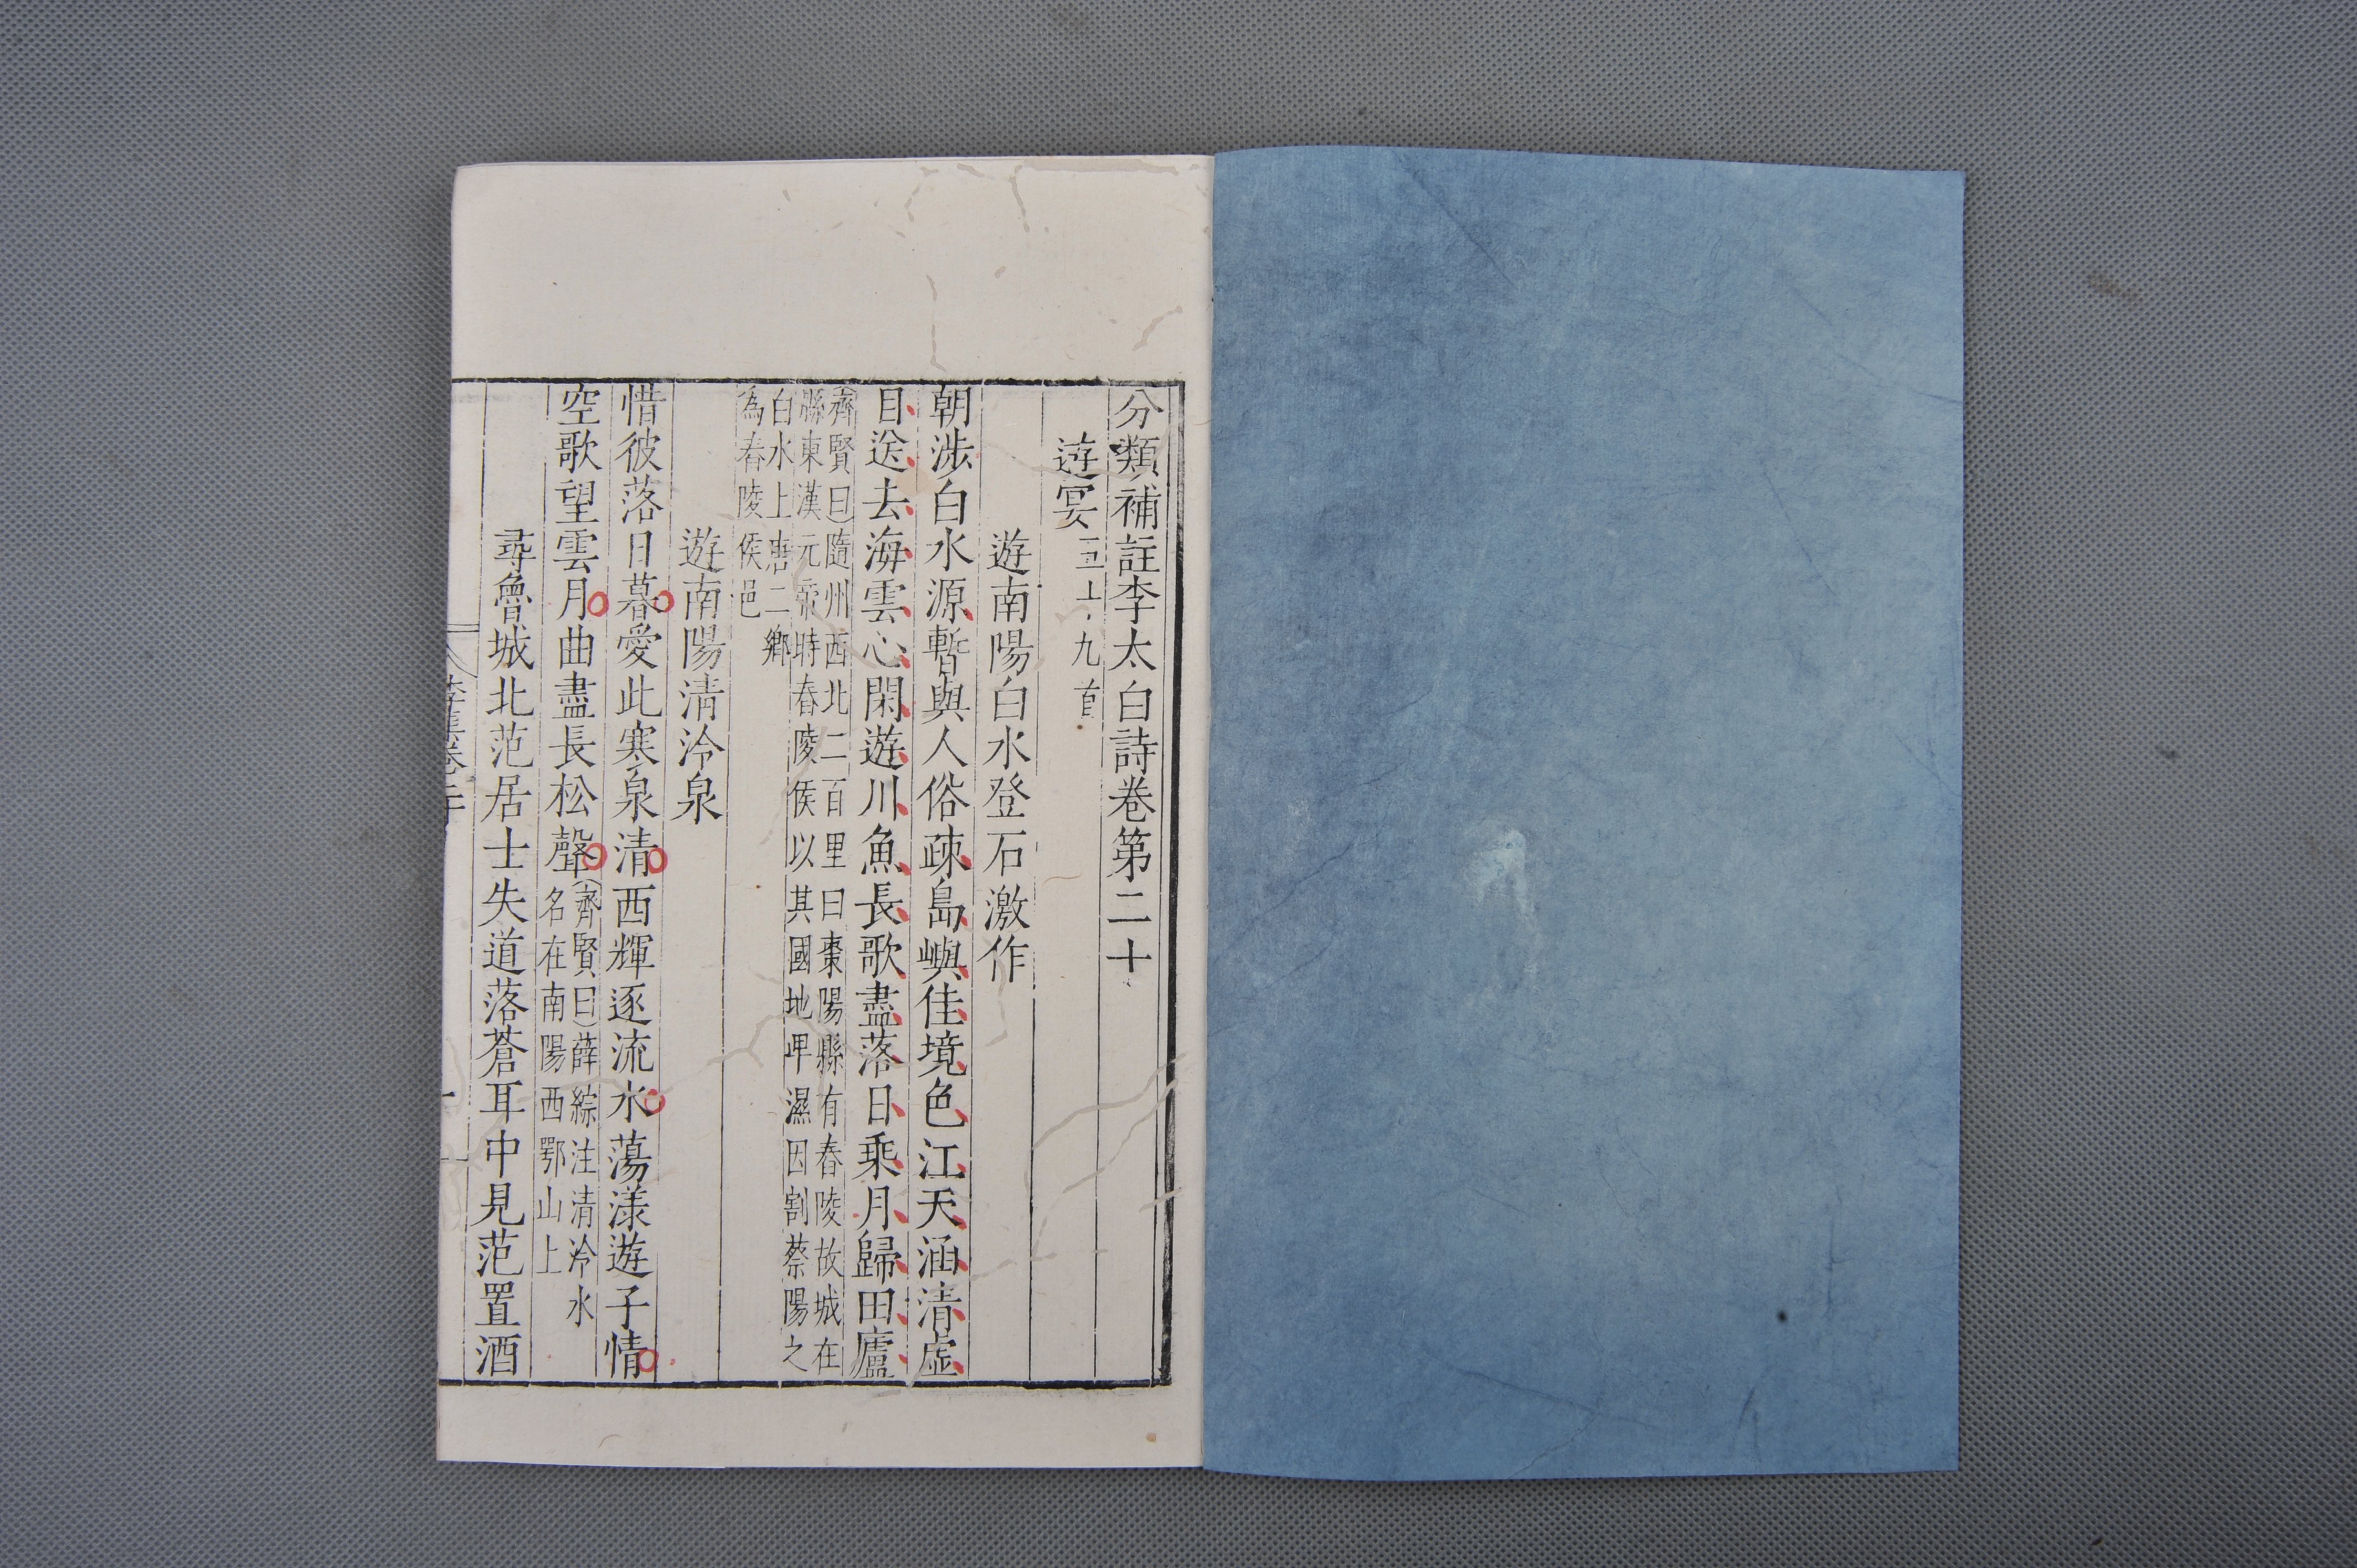 分類補註李太白詩卷第二十
遊宴五十九首
遊南陽白水登石激作
朝涉白水源暫與人俗疎島嶼佳境色江天涵清虛
目送去海雲心閑遊川魚長歌盡落日乘月歸田廬
齊賢曰隨州西北二百里曰棗陽縣有舂陵故城在
縣東漢元帝時舂陵侯以其國地卑濕因割蔡陽之
白水上唐二鄉
為舂陵侯邑
遊南陽清泠泉
惜彼落日暮愛此寒泉清西輝逐流水蕩漾遊子情
空歌望雲月曲盡長松聲
齊賢曰薛綜注清泠水
名在南陽西鄂山上
尋魯城北范居士失道落蒼耳中見范置酒
李集卷二十